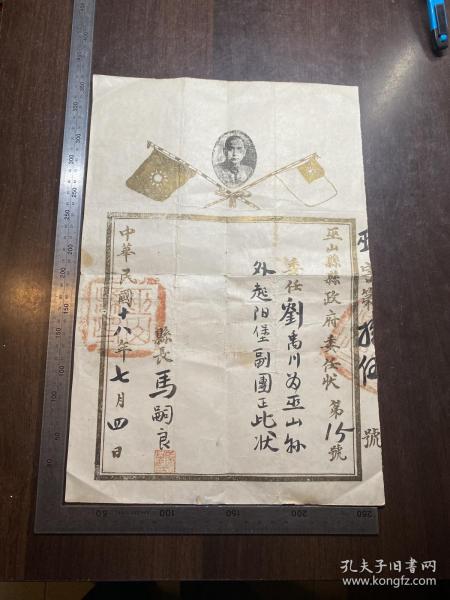 巫山縣縣政府委任狀 第15號
委任劉禹川为巫山縣
外趙阳堡副團正此状
縣長 馬嗣良
中華民國十八年七月四日
巫字第 號
孔夫子旧书网
www.kongfz.com